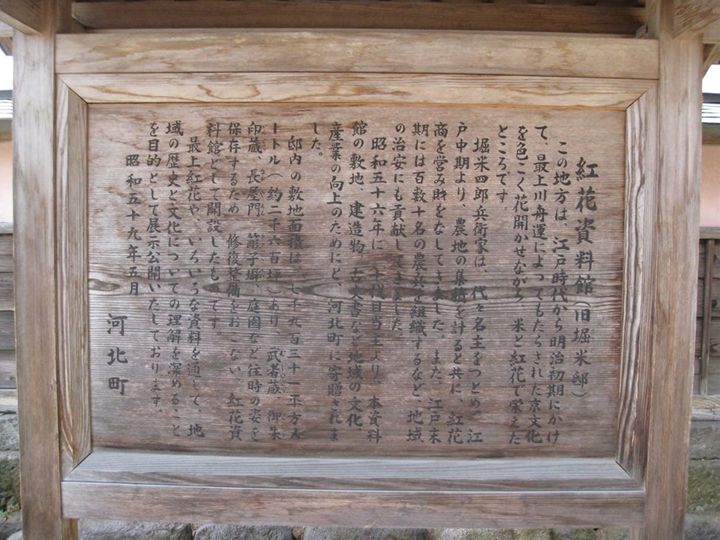 紅花資料館(旧堀米邸)
この地方は、江戸時代から明治初期にかけ
て、最上川舟運によってもたらされた京文化
を色こく花開かせながら 米と紅花で栄えた
ところです
堀米四郎兵衛家は 代々名主をつとめ 江
戸中期より 農地の集積を計ると共に 紅花
商を営み財をなしてきました。また、江戸末
期には百数十名の農兵を組織するなど 地域
の治安にも貢献してきました。
昭和五十六年に 十代目当主より、本資料
館の敷地 建造物 古文書など地域の文化、
産業の向上のためにと、河北町に寄贈されま
した。
邸内の敷地面積は 七千九百三十一平方メ
ートル(約二千六百坪)あり、武者蔵、御朱
印蔵、長屋門 籠子塀、庭園など往時の姿を
保存するため 修復整備をおこない、紅花資
料館として開設したものです。
最上紅花や、いろいろな資料を通して、地
域の歴史と文化についての理解を深めること
を目的として展示公開いたしております。
昭和五十九年五月 河北町